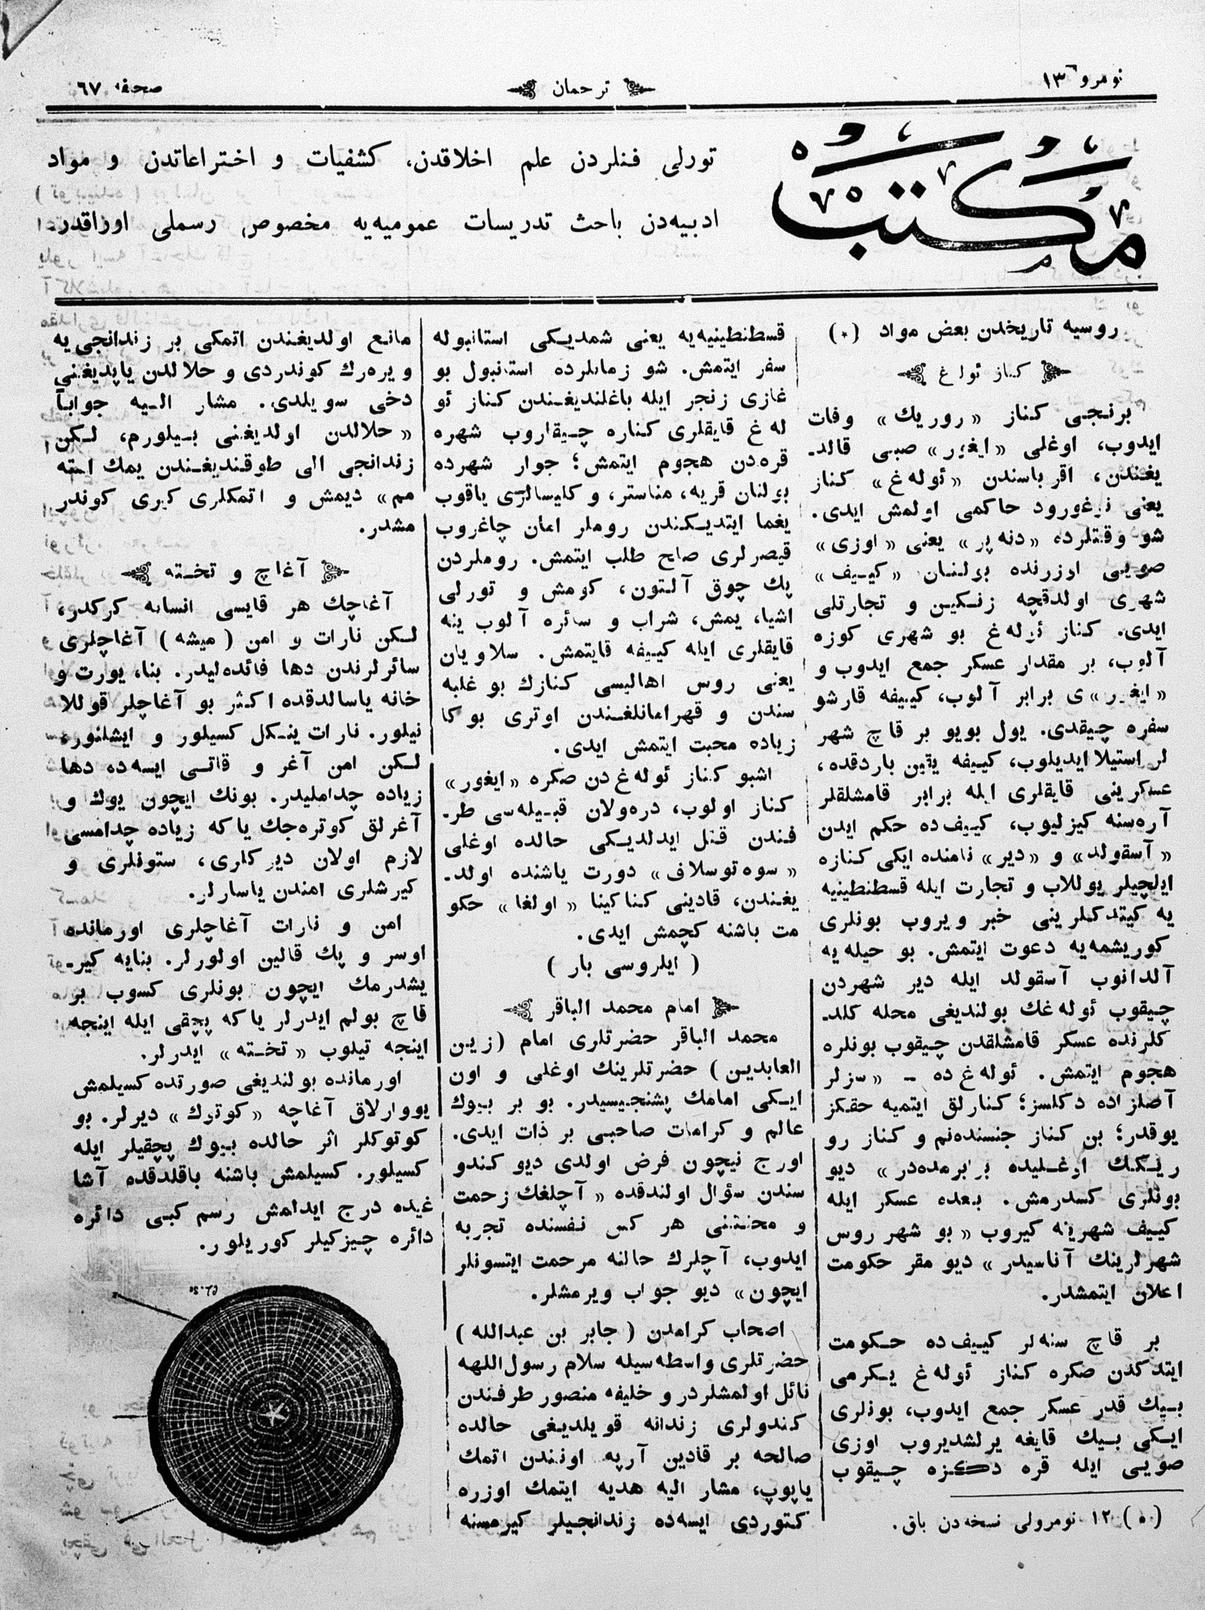 نومرو ١٣
ترجمان
صحفه ٦٧
مكتب
تورلى فنلردن علم اخلاقدن، كشفيات و اختراعاتدن و مواد
ادبيه‌دن باحث تدريسات عموميه‌يه مخصوص رسملى اوراقدر
روسيه تاريخندن بعض مواد (٠)
كناز ئولغ
برنجى كناز «روريك» وفات
ايدوب، اوغلى «ايغور» صبى قالد-
يغندن، اقرباسندن «ئوله‌غ» كناز
يعنى نوغورود حاكمى اولمش ايدى.
شو وقتلرده «دنه‌پر» يعنى «اوزى»
صويى اوزرنده بولنان «كييف»
شهرى اولدقچه زنكين و تجارتلى
ايدى. كناز ئوله‌غ بو شهرى كوزه
آلوب، بر مقدار عسكر جمع ايدوب و
«ايغور»ى برابر آلوب، كييفه قارشو
سفره چيقدى. يول بويو بر قاچ شهر
لر استيلا ايديلوب، كييفه يقين باردقده،
عسكرينى قايقلرى ايله برابر قامشلقلر
آره‌سنه كيزليوب، كييف‌ده حكم ايدن
«آسقولد» و «دير» نامنده ايكى كنازه
ايلچيلر يوللاب و تجارت ايله قسطنطينيه
يه كيتدكلرينى خبر ويروب بونلرى
كوريشمه‌يه دعوت ايتمش. بو حيله‌يه
آلدانوب آسقولد ايله دير شهردن
چيقوب ئوله‌غك بولنديغى محله كلد-
كلرنده عسكر قامشلقدن چيقوب بونلره
هجوم ايتمش. ئوله‌غ ده – «سزلر
آصلزاده دكلسز؛ كنارلق ايتميه حقكز
يوقدر؛ بن كناز جنسنده‌نم و كناز رو
ريكك اوغليده برابرمده‌در» ديو
بونلرى كسدرمش. بعده عسكر ايله
كييف شهرينه كيروب «بو شهر روس
شهرلرينك آناسيدر» ديو مقر حكومت
اعلان ايتمشدر.
بر قاچ سنه‌لر كييف‌ده حكومت
ايتدكدن صكره كناز ئوله‌غ يكرمى
بيك قدر عسكر جمع ايدوب، بونلرى
ايكى بيك قايغه يرلشديروب اوزى
صويى ايله قره دكزه چيقوب
(٠) ١٢ نومرولى نسخه‌دن باق.
قسطنطينيه‌يه يعنى شمديكى استانبوله
سفر ايتمش. شو زمانلرده استانبول بو
غازى زنجر ايله باغلنديغندن كناز ئو
له‌غ قايقلرى كناره چيقاروب شهره
قره‌دن هجوم ايتمش؛ جوار شهرده
بولنان قريه، مناستر، و كليسالرى ياقوب
يغما ايتديكندن روملر امان چاغروب
قيصرلرى صلح طلب ايتمش. روملردن
پك چوق آلتون، كومش و تورلى
اشيا، يمش، شراب و سائره آلوب ينه
قايقلرى ايله كييفه قايتمش. سلاويان
يعنى روس اهاليسى كنازك بو غلبه
سندن و قهرامانلغندن اوترى بوكا
زياده محبت ايتمش ايدى.
اشبو كناز ئوله‌غ دن صكره «ايغور»
كناز اولوب، دره‌ولان قبيله‌سى طر-
فندن قتل ايدلديكى حالده اوغلى
«سوه‌توسلاف» دورت ياشنده اولد-
يغندن، قادينى كناكينا «اولغا» حكو
مت باشنه كچمش ايدى.
(ايلروسى بار)
امام محمد الباقر
محمد الباقر حضرتلرى امام (زين
العابدين) حضرتلرينك اوغلى و اون
ايكى امامك پشنجيسيدر. بو بر بيوك
عالم و كرامات صاحبى بر ذات ايدى.
اورج نيچون فرض اولدى ديو كندو
سندن سؤال اولندقده «آچلغك زحمت
و محنتنى هر كس نفسنده تجربه
ايدوب، آچلرك حالنه مرحمت ايتسونلر
ايچون» ديو جواب ويرمشلر.
اصحاب كرامدن (جابر بن عبدالله)
حضرتلرى واسطه‌سيله سلام رسول‌اللهه
نائل اولمشلردر و خليفه منصور طرفندن
كندولرى زندانه قويلديغى حالده
صالحه بر قادين آرپه اونندن اتمك
ياپوب، مشار اليه هديه ايتمك اوزره
كتوردى ايسه‌ده زندانجيلر كيرمسنه
مانع اولديغندن اتمكى بر زندانجى‌يه
ويره‌رك كوندردى و حلالدن ياپديغنى
دخى سويلدى. مشار اليه جواباً
«حلالدن اولديغنى بيلورم، لكن
زندانجى الى طوقنديغندن يمك استه
مم» ديمش و اتمكلرى كيرى كوندر
مشدر.
آغاچ و تخته
آغاچك هر قايسى انسانه كركدر،
لكن نارات و امن (ميشه) آغاچلرى
سائرلرندن دها فائده‌ليدر. بنا، يورت و
خانه ياسالدقده اكثر بو آغاچلر قوللا
نيلور. نارات ينكل كسيلور و ايشلنوره
لكن امن آغر و قاتى ايسه‌ده دها
زياده چداملیدر. بونك ايچون يوك و
آغرلق كوتره‌جك ياكه زياده چدامسى
لازم اولان ديركلرى، ستونلرى و
كيرشلرى امندن ياسارلر.
امن و نارات آغاچلرى اورمانده
اوسر و پك قالين اولورلر. بنايه كير-
يشدرمك ايچون بونلرى كسوب بر
قاچ بولم ايدرلر ياكه پچقى ايله اينجه
اينجه تيلوب «تخته» ايدرلر.
اورمانده بولنديغى صورتده كسيلمش
يووارلاق آغاچه «كوتوك» ديرلر. بو
كوتوكلر اثر حالده بيوك پچقيلر ايله
كسيلور. كسيلمش باشنه باقلدقده آشا
غيده درج ايدلمش رسم كبى دائره
دائره چيزكيلر كوريلور.